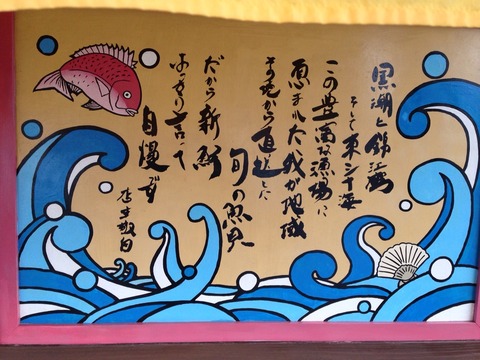 黒潮と錦江湾
そして東シナ海
この豊富な漁場に
恵まれた我が地域
その地から直送した
旬の魚貝
だから新鮮
はっきり言って
自慢です
店主敬白